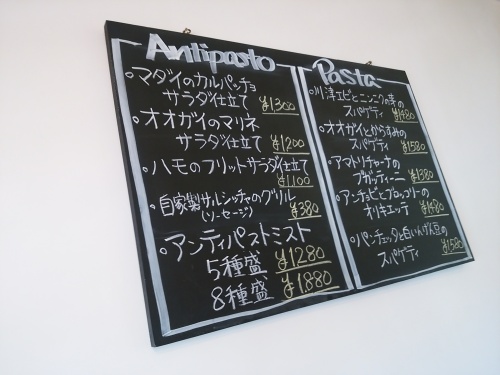 Antipasto
・マダイのカルパッチョ
サラダ仕立て ¥1300
・オオガイのマリネ
サラダ仕立て ¥1200
・ハモのフリットサラダ仕立て
¥1100
・自家製サルシッチャのグリル
(ソーセージ) ¥380
・アンティパストミスト
5種盛 ¥1280
8種盛 ¥1880
Pasta
・川津エビとニンニクの芽の
スパゲティ ¥1480
・オオガイとからすみの
スパゲティ ¥1580
・アマトリチャーナの
ブガッティーニ ¥1380
・アンチョビとブロッコリーの
オリキエッテ ¥1480
・パンチェッタと白いんげん豆の
スパゲティ ¥1580